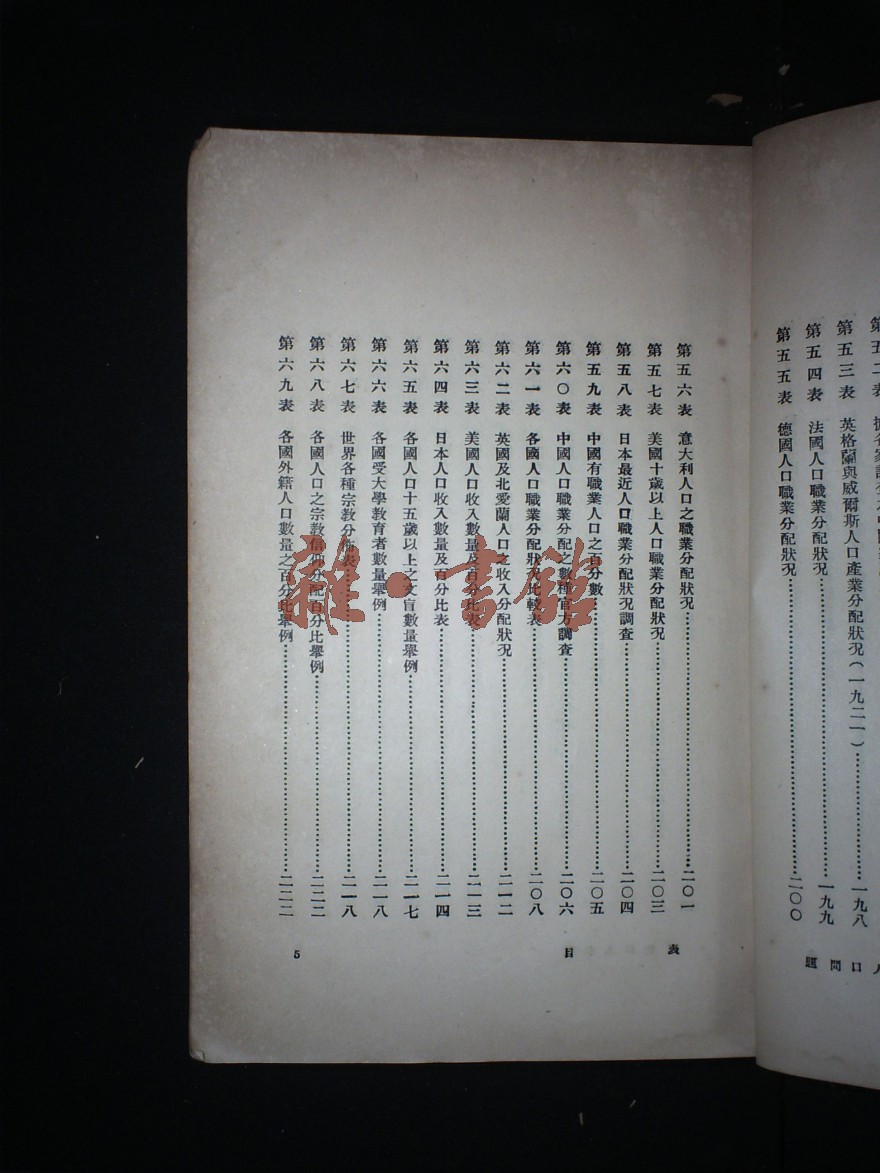 第五三表　英格蘭與威爾斯人口產業分配狀況(一九二一)……一九八
第五四表　法國人口職業分配狀況……一九九
第五五表　德國人口職業分配狀况……二〇〇
口問題
第五六表　意大利人口之職業分配狀況……二〇一
第五七表　美國十歲以上人口職業分配狀況……二〇三
第五八表　日本最近人口職業分配狀況調查……二〇四
第五九表　中國有職業人口之百分數……二〇五
第六〇表　中國人口職業分配之數種官方調查……二〇六
第六一表　各國人口職業分配狀況比較表……二〇八
第六二表　英國及北愛蘭人口之收入分配狀況……二一二
第六三表　美國人口收入數量及百分比表……二一三
第六四表　日本人口收入數量及百分比表……二一四
第六五表　各國人口十五歲以上之文盲數量舉例……二一七
第六六表　各國受大學教育者數量舉例……二一八
第六七表　世界各種宗教分佈表……二一八
第六八表　各國人口之宗教信仰分配百分比舉例……二二二
第六九表　各國外籍人口數量之百分比舉例……二二二
表目
5
雜·書館